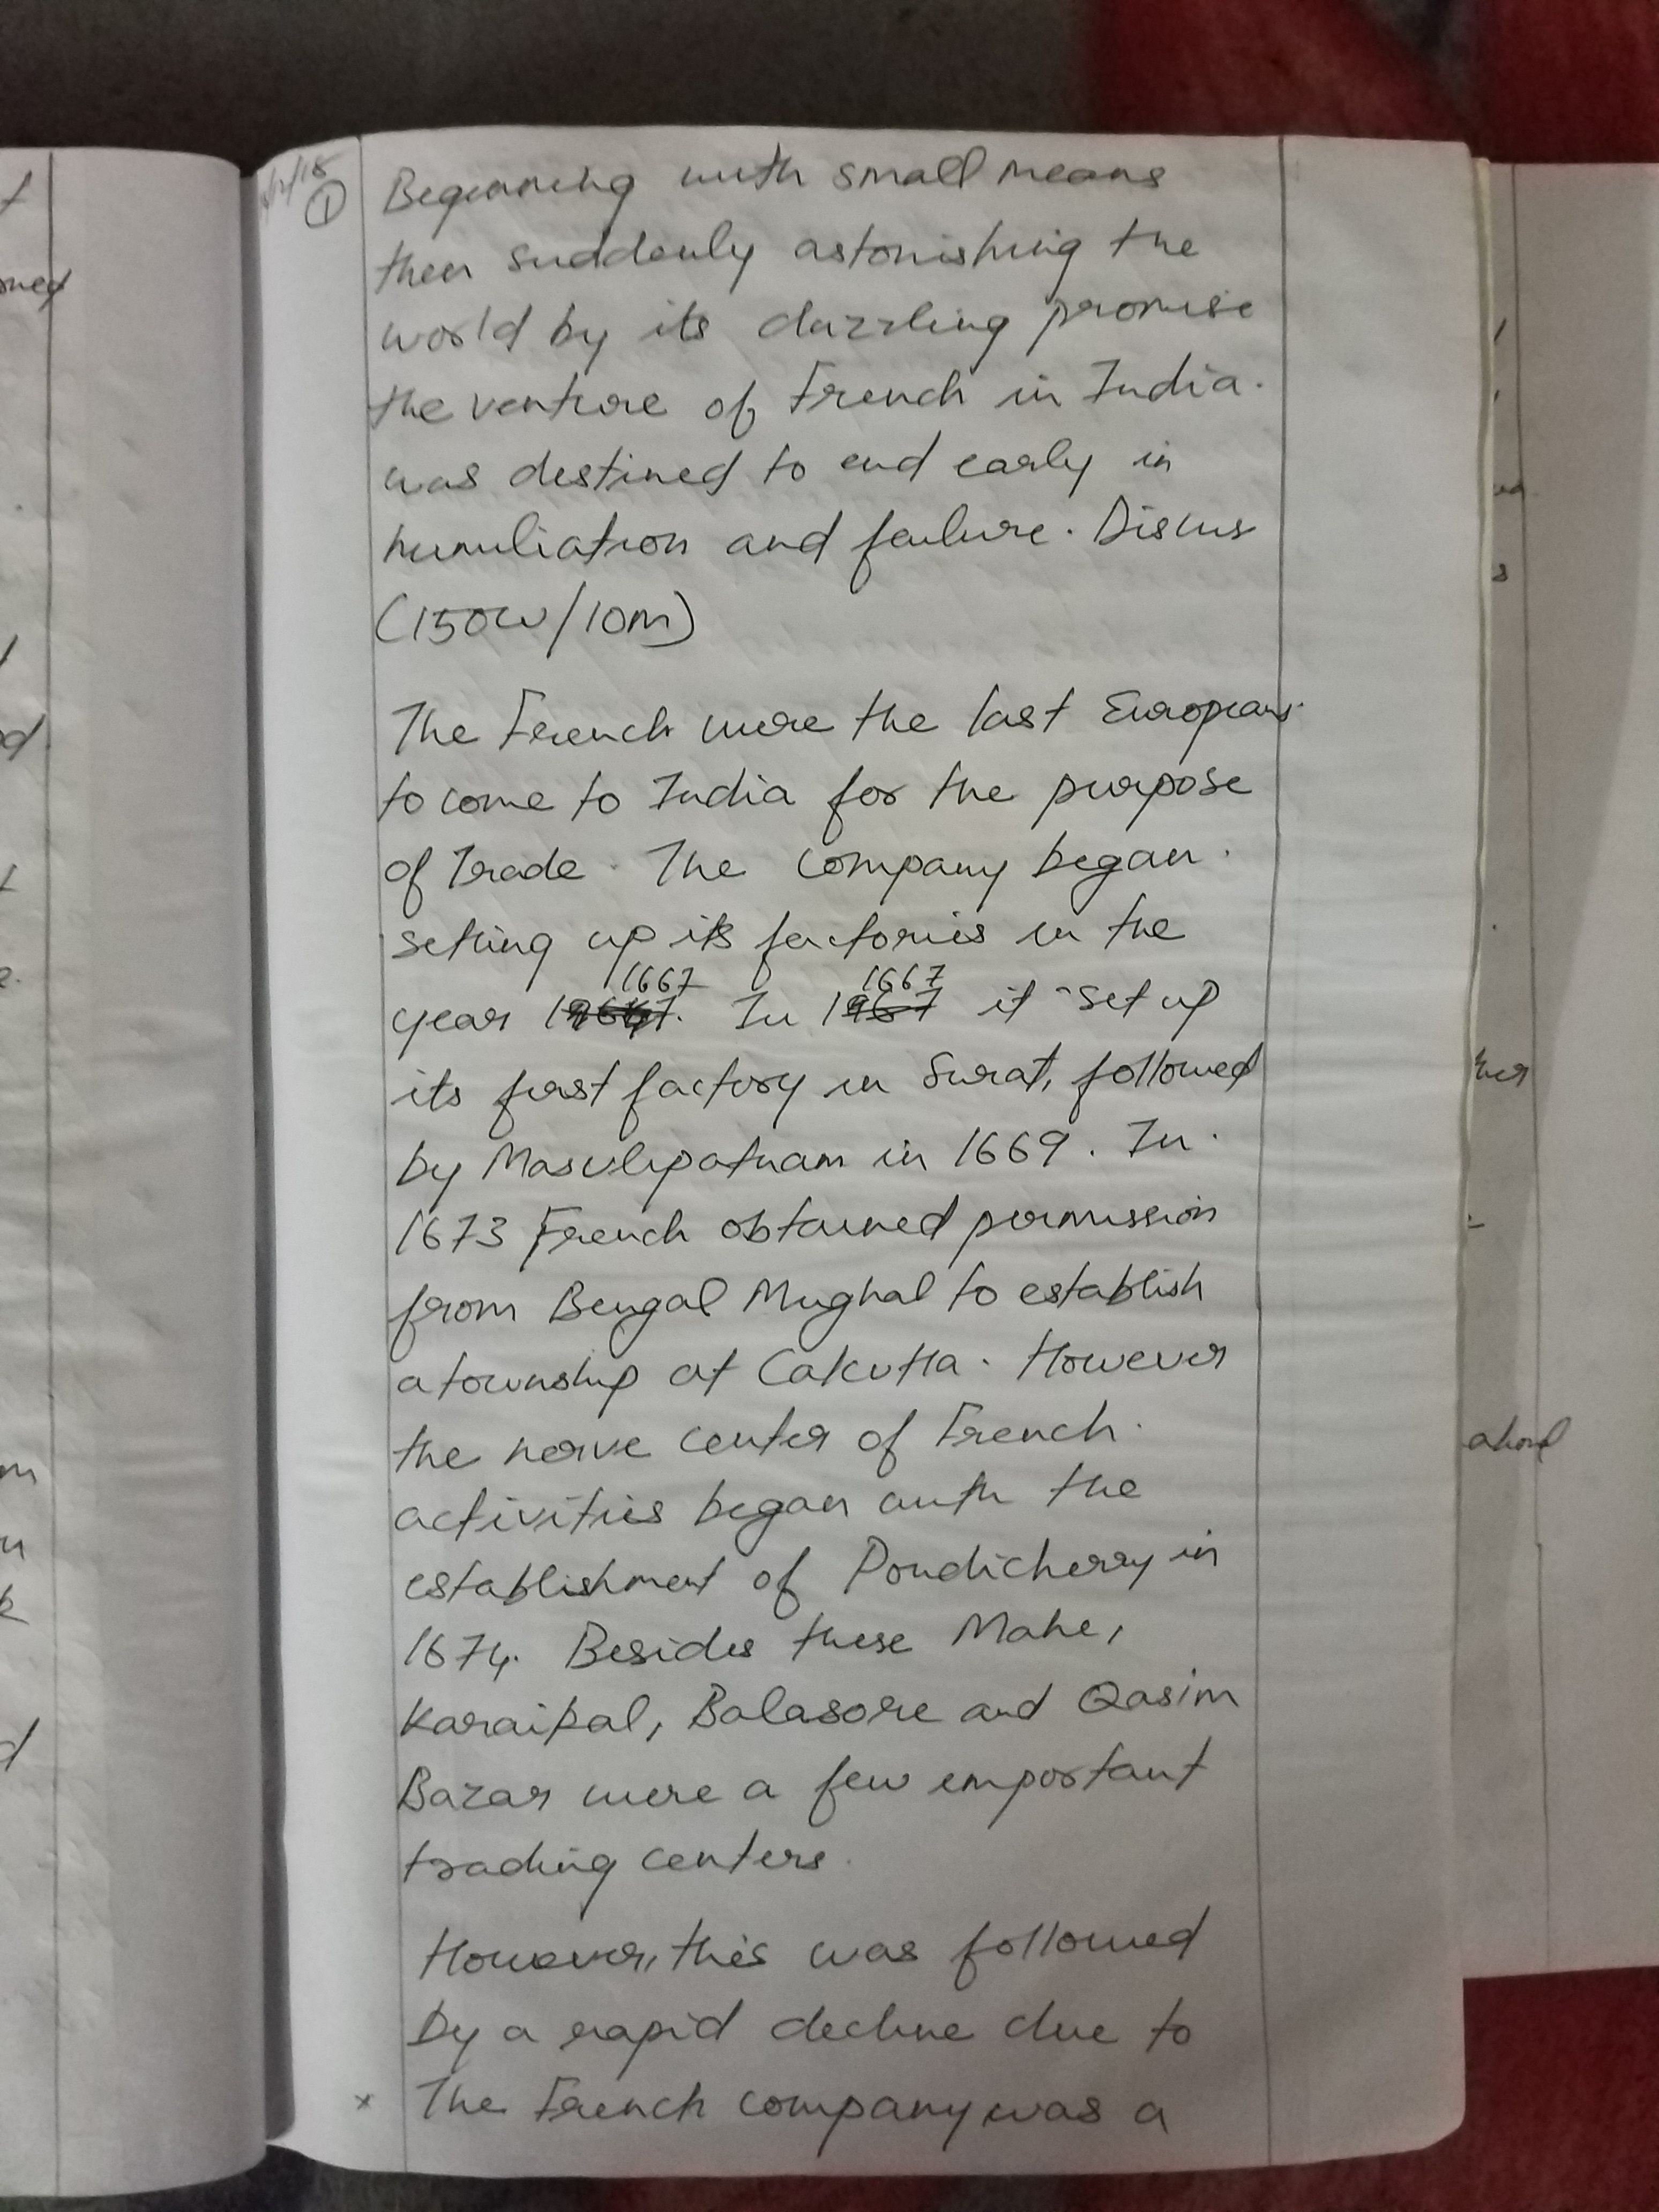 ①
Beginning with small means
then suddenly astonishing the
world by its dazzling promise
the venture of French in India.
was destined to end early in
humiliation and failure. Discus
(150w/10m)
The French were the last Europeans.
to come to India for the purpose
of Trade. The Company began.
setting up its factories in the
year 1667. In 1667 it set up
its first factory in Surat, followed
by Masulipatnam in 1669. In.
1673 French obtained permission
from Bengal Mughal to establish
a township at Calcutta. However
the nerve center of French.
activities began with the
establishment of Pondicherry in
1674. Besides these Mahe,
Karaikal, Balasore and Qasim
Bazar were a few important
trading centers.
However, this was followed
by a rapid decline due to
x The French company was a
ahead